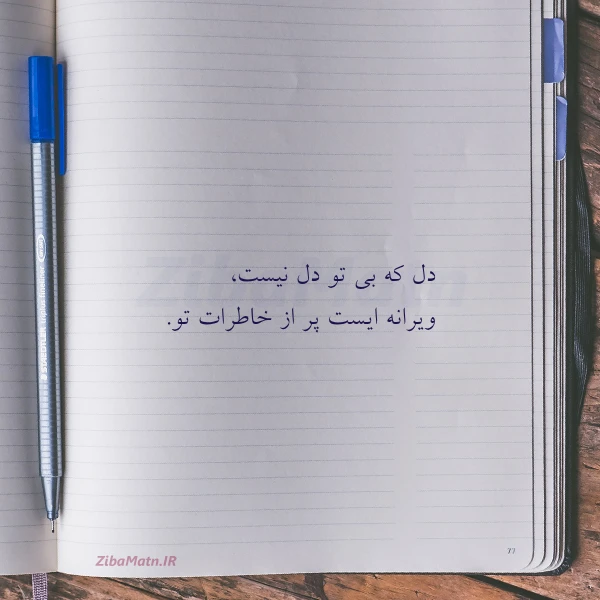 دل که بی تو دل نیست،
ویرانه ایست پر از خاطرات تو.
ZibaMatn.IR
STAEDTLER triplus fineliner